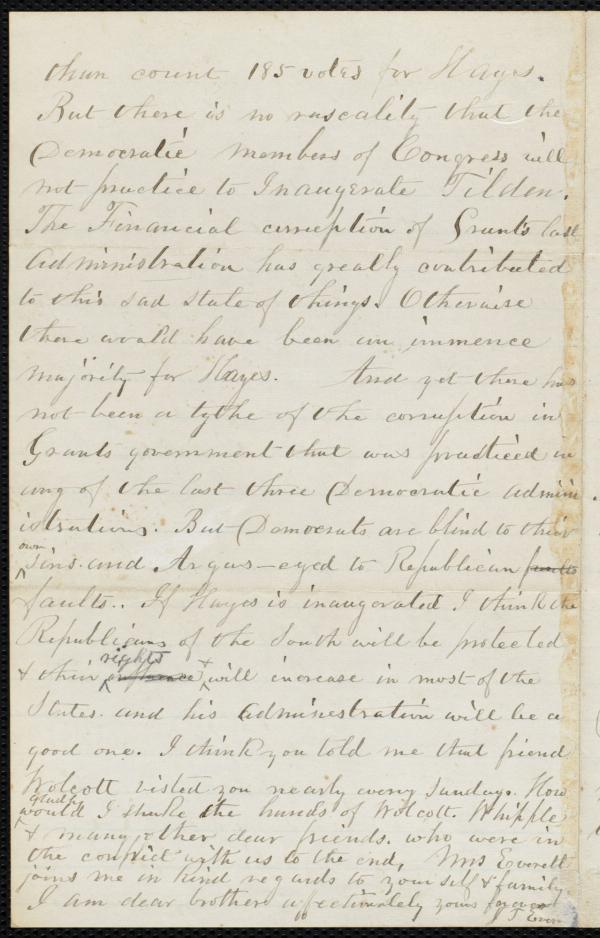 than count 185 votes for Hayes.
But there is no rascality that the
Democratic members of Congress will
not practice to Inaugerate Tilden.
The Financial curruption of Grants last
administration has greatly contributed
to this sad state of things. Otherwise
there would have been an immence
majority for Hayes. And yet there has
not been a tythe of the corruption in
Grants government that was practiced in
any of the last three Democratic admin
istrations. But Democrats are blind to their
own
sins and Argus-eyed to Republican faults
faults.. If Hayes is inaugorated I think the
Republicans of the South will be protected
rights
& their influence & will increase in most of the
States. and his administration will be a
good one. I think you told me that friend
Wolcott visted you nearly every Sunday. How
gladly
would I shake the hands of Wolcott. Whipple
& many other dear friends. who were in
the conflict with us to the end, Mrs Everett
joins me in kind regards to your self & family
I am dear brother affectionately yours forever
J T Everett